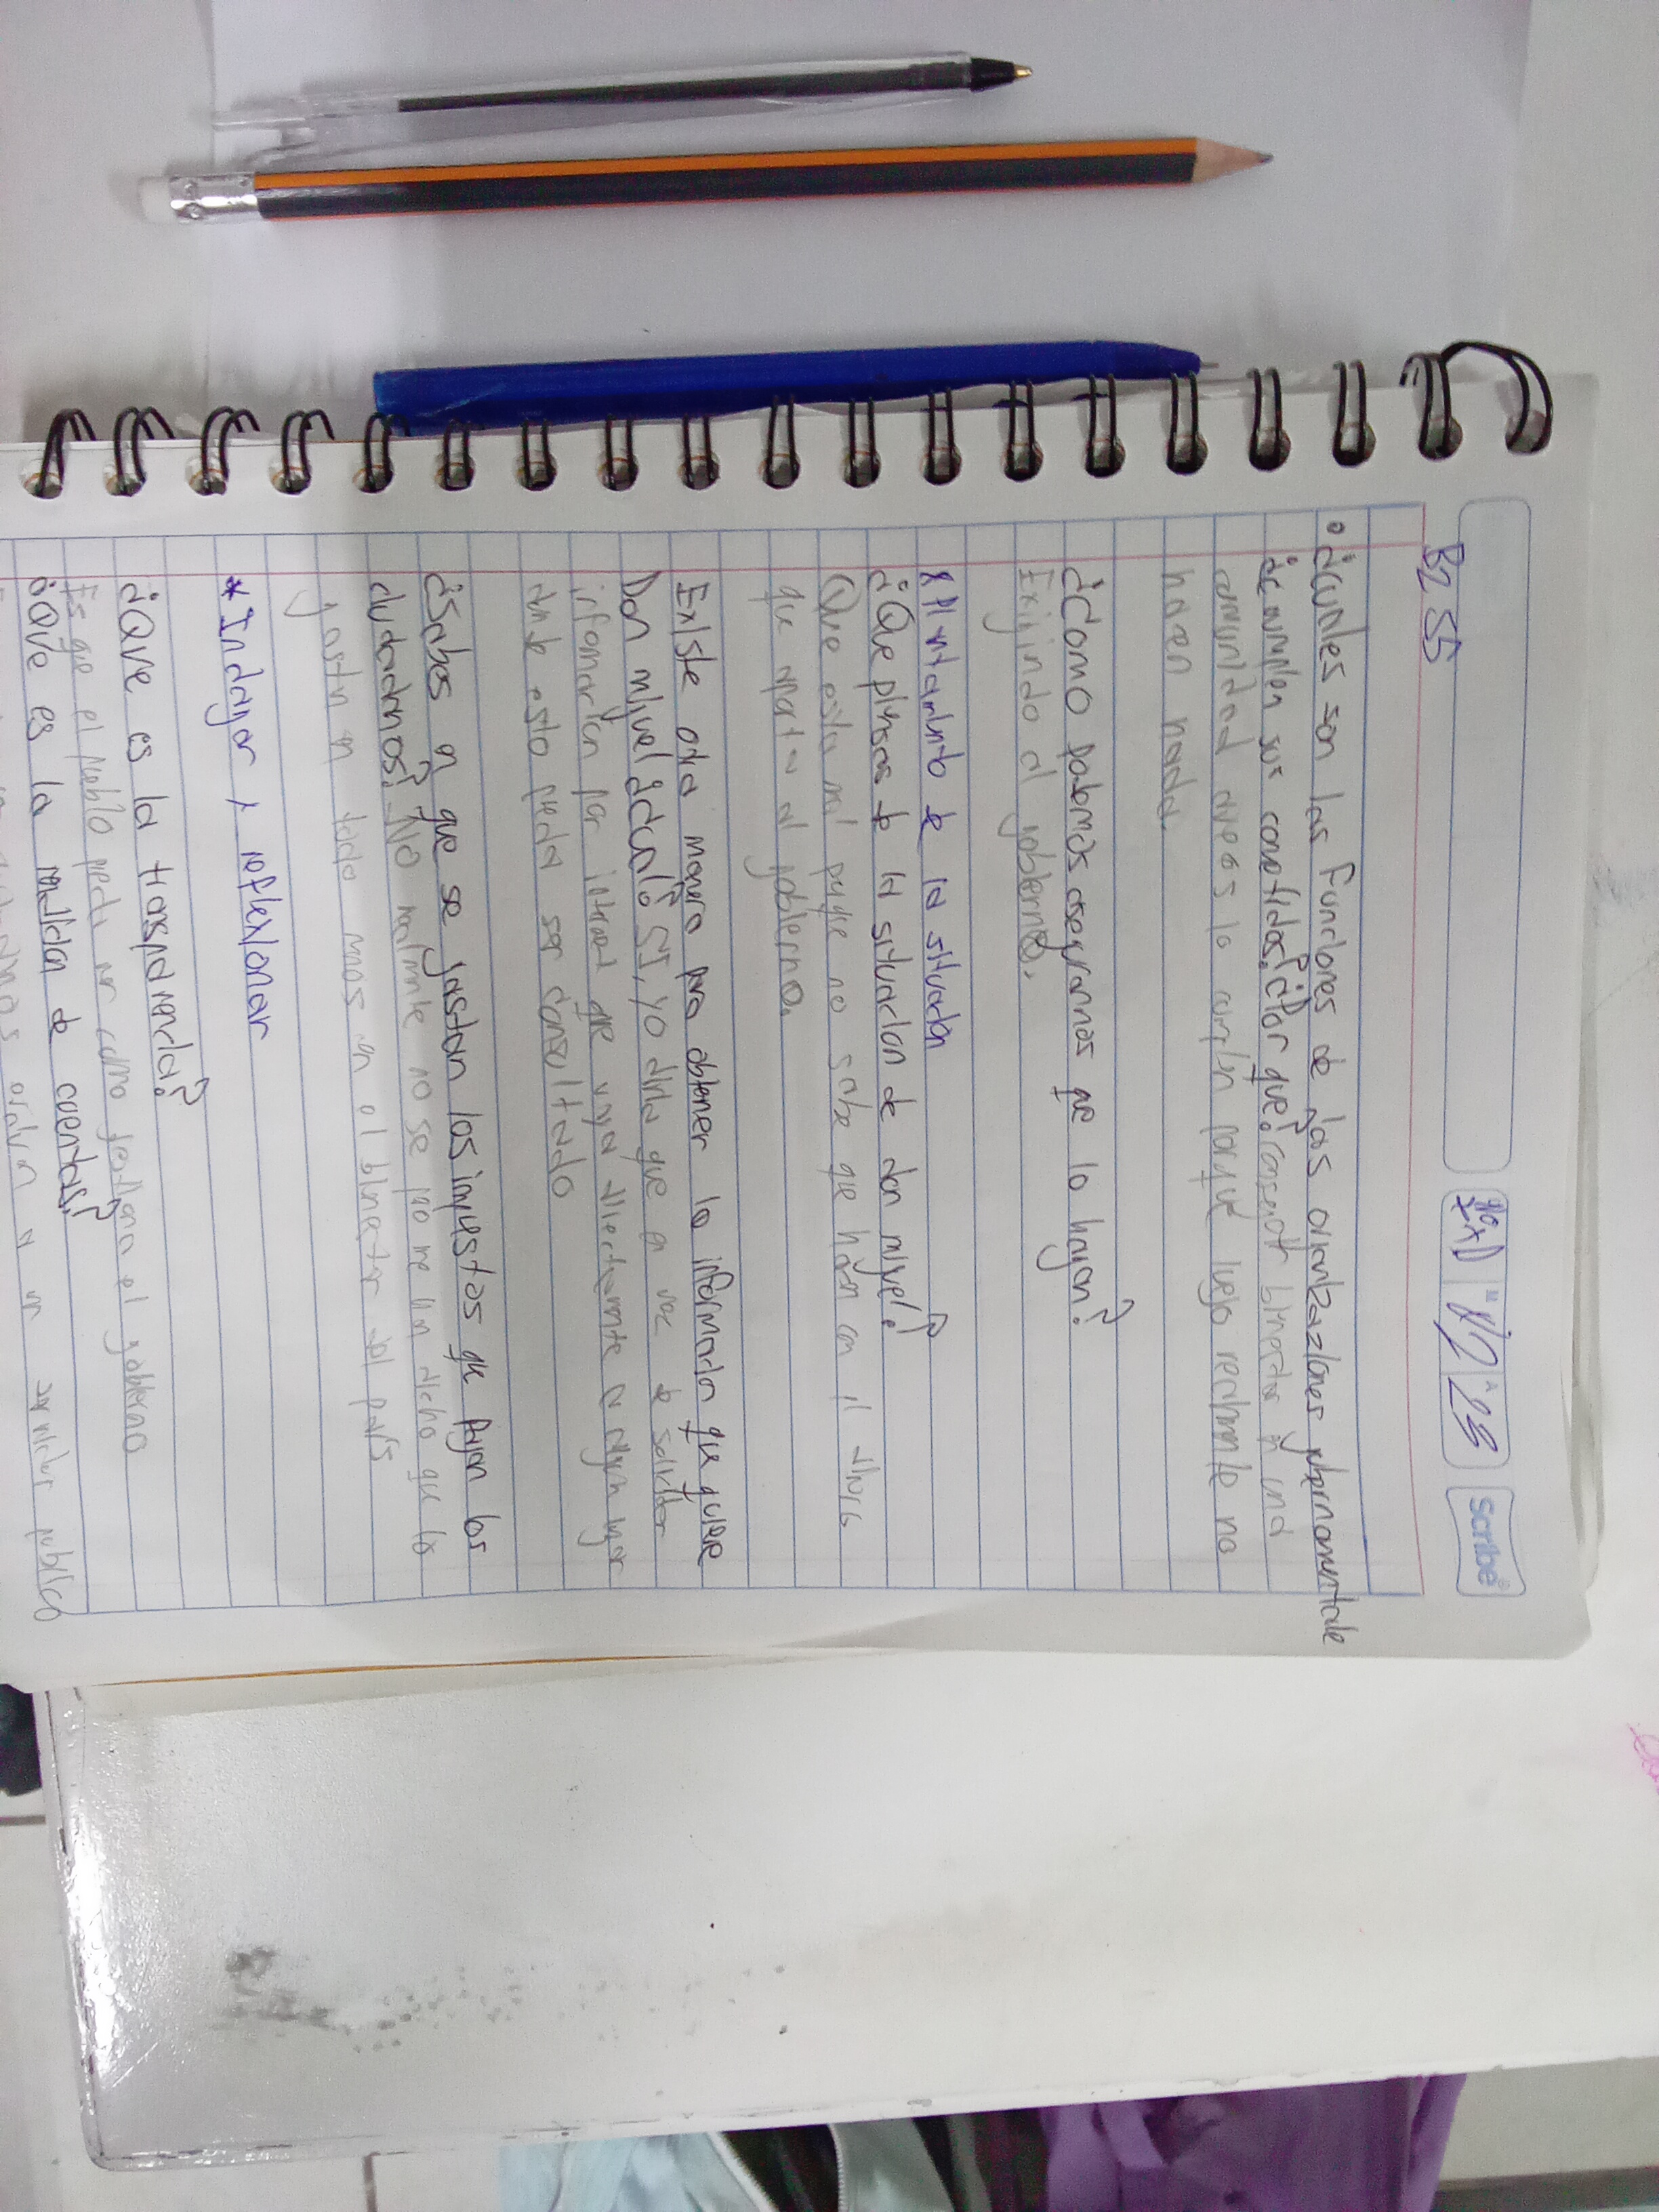 B2 S5
scribe
• ¿Cuales son las Funciones de las organizaziones gubernamentale
¿cumplen sus cometidos? ¿Por que? conseguir bienestar a una
comunidad aveces lo cumplen porque luego realmente no
hacen nada.
¿Como podemos asegurarnos que lo hagan?
Exigiendo al gobierno.
* Planteamiento de la situacion
¿Que piensas de la situacion de don miguel?
Que esta mal porque no sabe que hacen con el dinero
que aporta al gobierno.
Existe otra manera para obtener la informacion que quiere
Don miguel ¿cual? SI, yo diria que en vez de solicitar
informacion por internet que vaya directamente a algun lugar
donde esto pueda ser consultado
¿Sabes en que se gastan los impuestos que pagan los
ciudadanos? No realmente no se pero me han dicho que lo
gastan en todo mas en el bienestar del país
* Indagar y reflexionar
¿Que es la transparencia?
Es que el pueblo pueda ver como gestiona el gobierno
¿Que es la rendicion de cuentas?
a un servidor publico